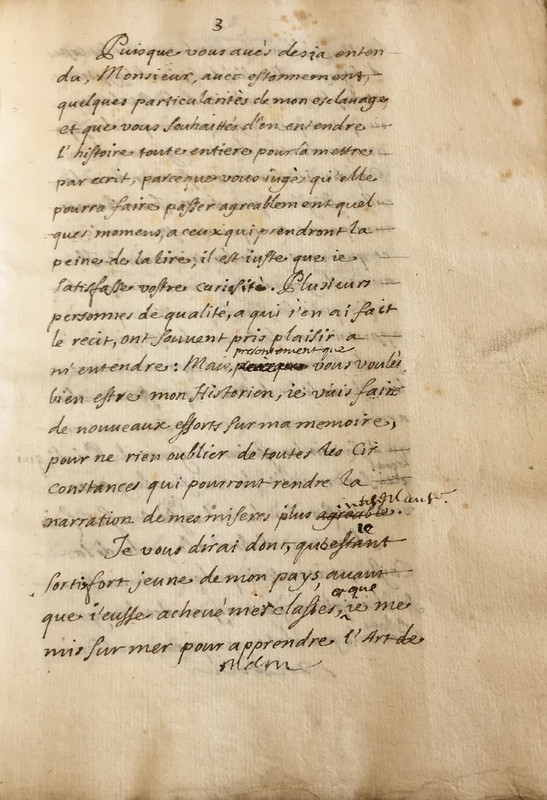 3
Puisque vous aués desia enten
du, Monsieux, auec estonnement,
quelques particularités de mon esclauage
et que vous souhaittés d'en entendre
l'histoire toute entiere pour la mettre
par ecrit, parceque vous iugés qu'elle
pourra faire passer agreablement quel
ques momens, a ceux qui prendront la
peine de la lire, il est iuste que ie
satisfasse vostre curiosité. Plusieurs
personnes de qualité, a qui i'en ai fait
le recit, ont souvent pris plaisir a
presentement que
m'entendre: Mais, vous voulés
bien estre mon Historien, ie vais faire
de nouueaux efforts sur ma memoire,
pour ne rien oublier de toutes les Cir
constances qui pourront rendre la
narration de mes miseres plus agreable.
ie
Je vous dirai donc, qu'estant
sorti fort jeune de mon pays, auant
et que
que i'eusse acheué mes classes, ie me
mis sur mer pour apprendre l'Art de